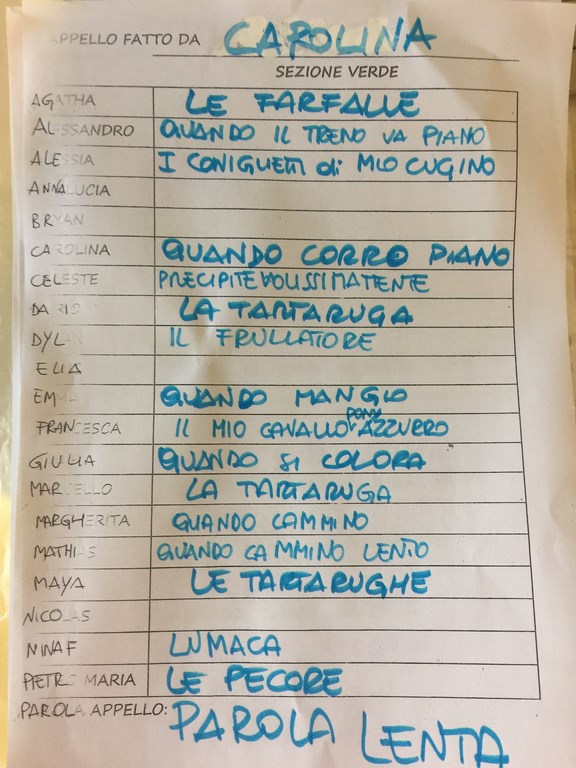 APPELLO FATTO DA CAROLINA
SEZIONE VERDE
AGATHA LE FARFALLE
ALESSANDRO QUANDO IL TRENO VA PIANO
ALESSIA I CONIGLIETTI di MIO CUGINO
ANNALUCIA
BRYAN
CAROLINA QUANDO CORRO PIANO
CELESTE PRECIPITEVOLISSIMAMENTE
LA TARTARUGA
DYLAN IL FRULLATORE
ELIA
EMMA QUANDO MANGIO
FRANCESCA IL MIO CAVALLO PONY AZZURRO
GIULIA QUANDO SI COLORA
MARCELLO LA TARTARUGA
MARGHERITA QUANDO CAMMINO
MATHIAS QUANDO CAMMINO LENTO
MAYA LE TARTARUGHE
NICOLAS
NINA F LUMACA
PIETRO MARIA LE PECORE
PAROLA APPELLO: PAROLA LENTA